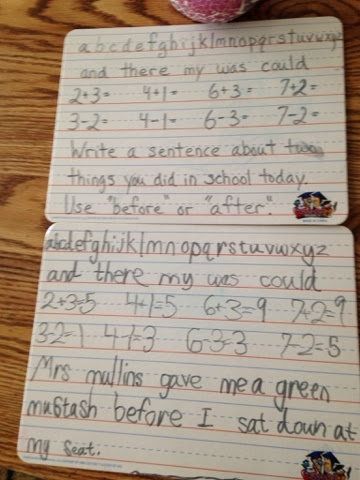 abcdefghijklmnopqrstuvwxyz
and there my was could
2+3= 4+1= 6+3= 7+2=
3-2= 4-1= 6-3= 7-2=
Write a sentence about two
things you did in school today.
Use "before" or "after".
abcdefghijklmnopqrstuvwxyz
and there my was could
2+3=5 4+1=5 6+3=9 7+2=9
3-2=1 4-1=3 6-3=3 7-2=5
Mrs mullins gave me a green
mustash before I sat down at
my seat.